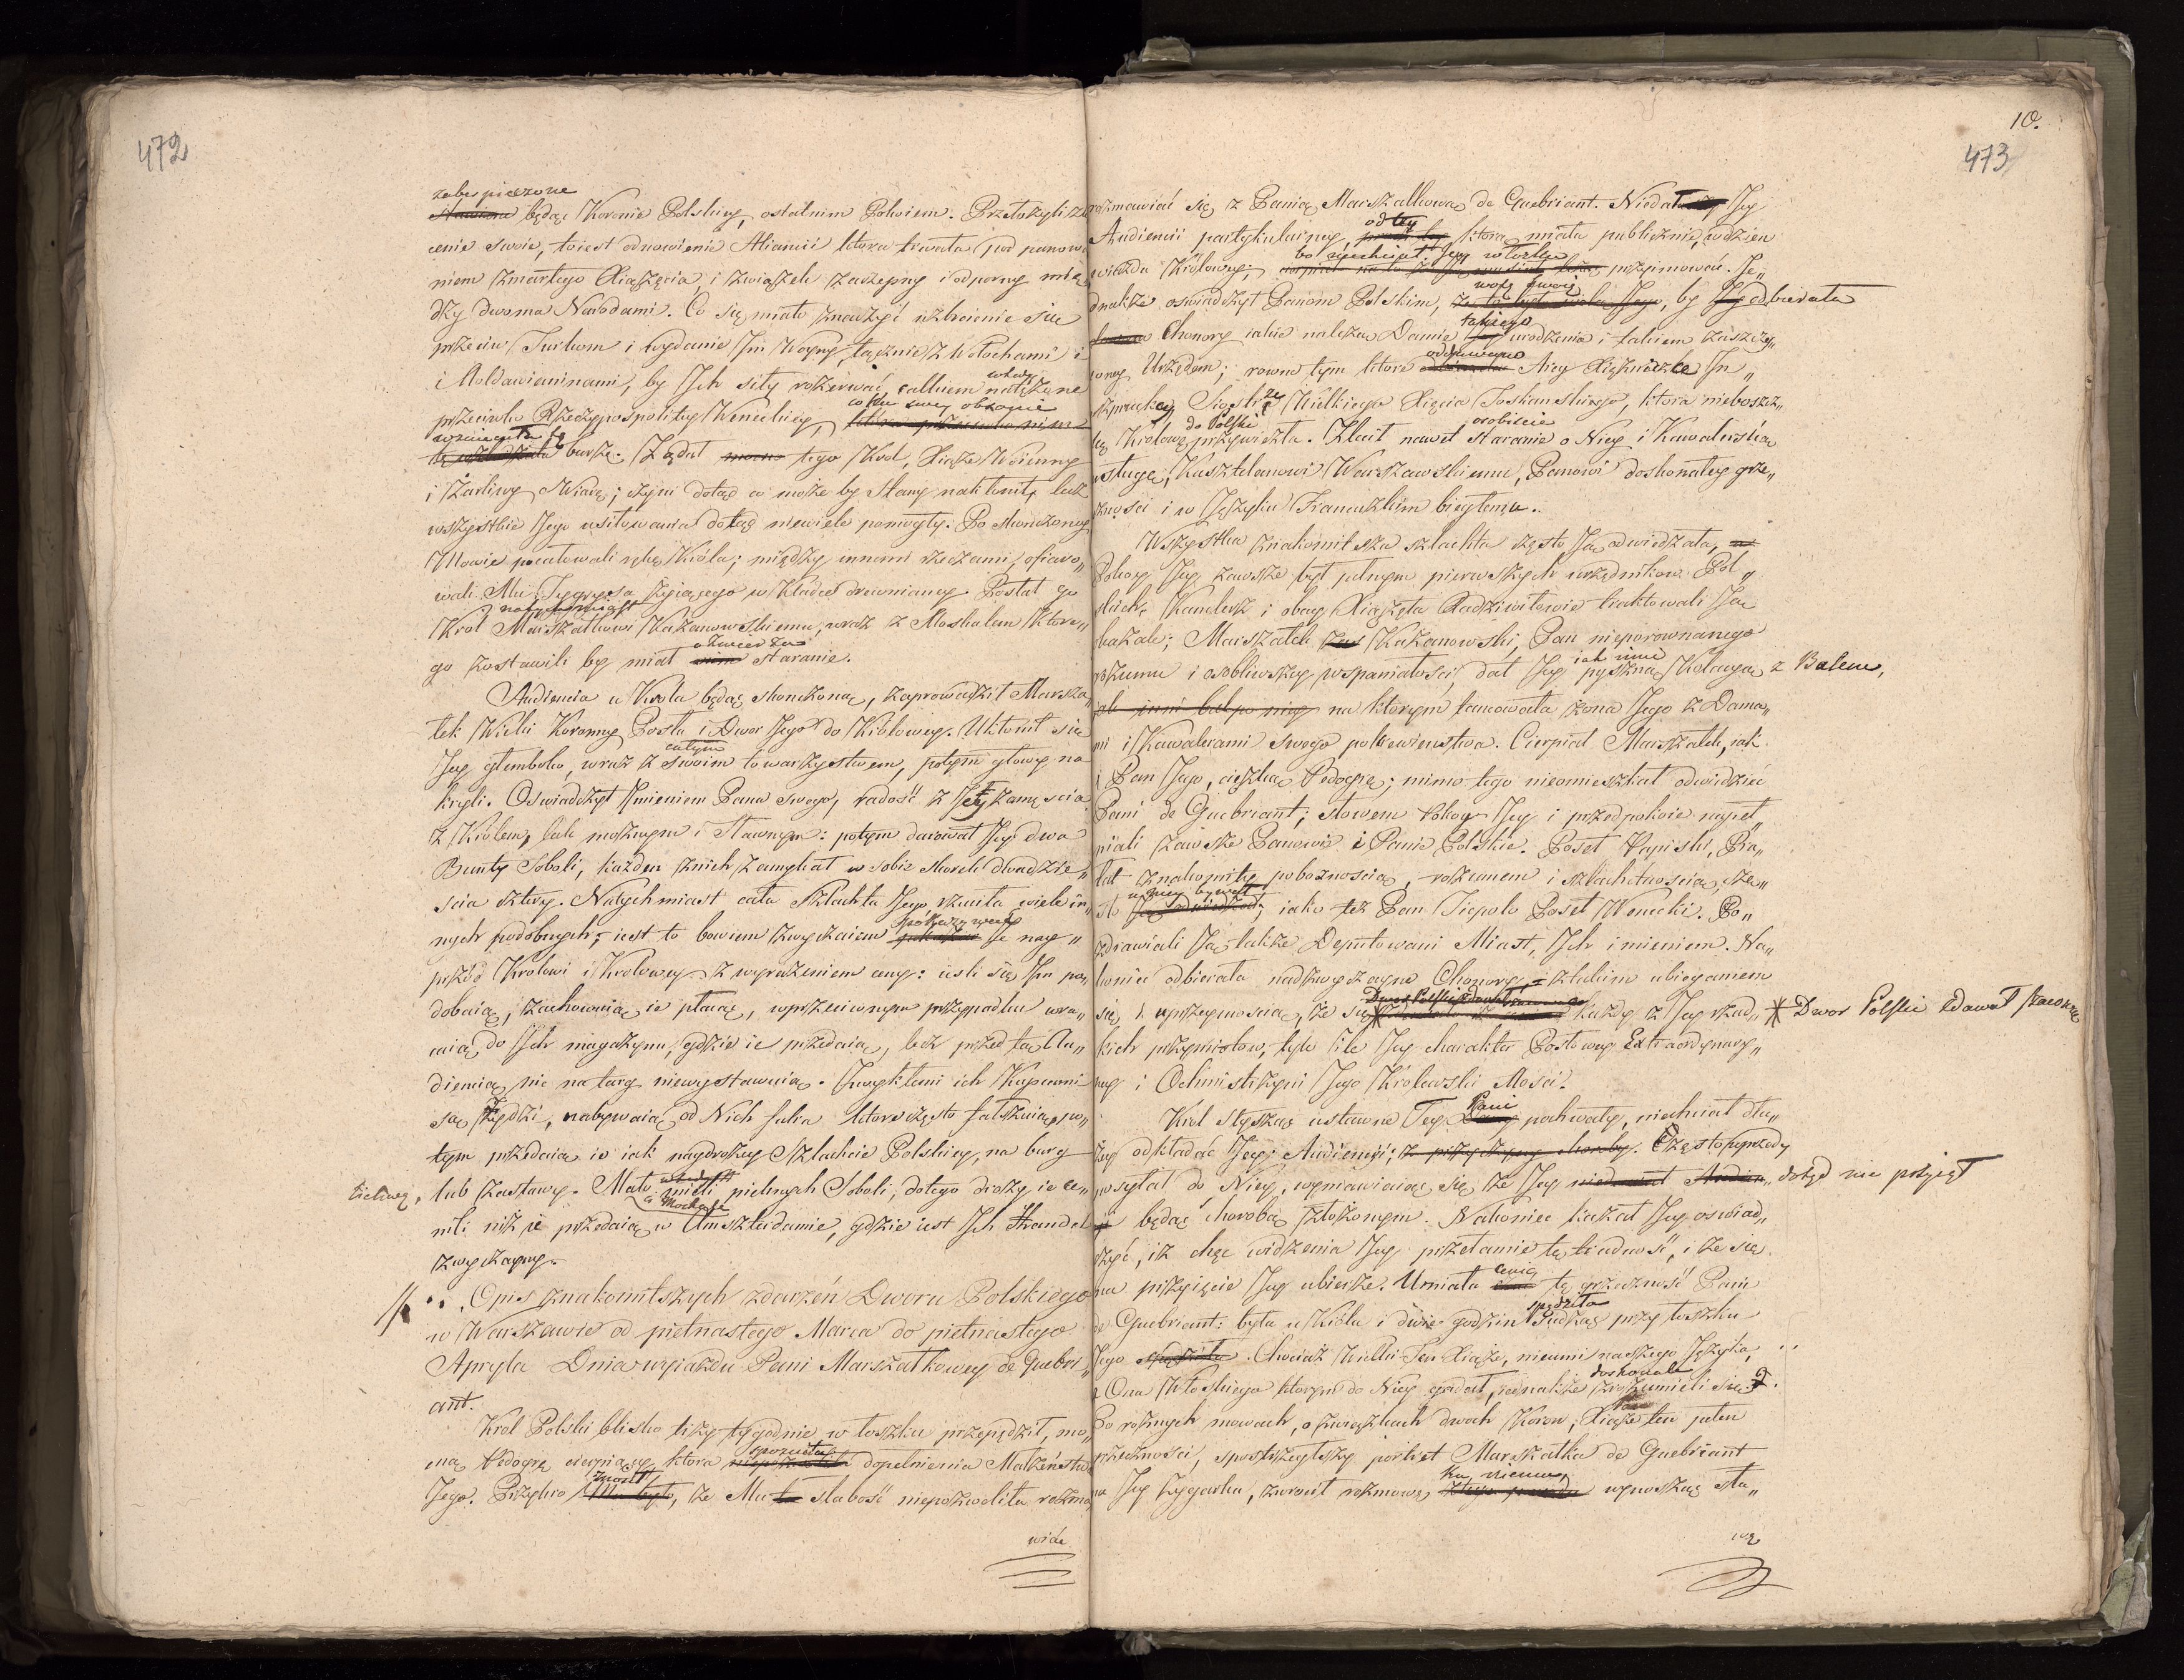 472
zabespieczone
będąc Koronie Polskiey, ostatnim Pokoiem. Przełożyli zle
cenie swoie, toiest odnowienie Aliancii ktora trwała pod panowa
niem zmarłego Xiążęcia, i związek zaczepny i odporny mię
dzy dwoma Narodami. Co się miało znaczyć uzbroienie się
przeciw Turkom i wydanie Im Woyny, łącznie z Wołochami i
i Mołdawianinami, by Ich siły rozerwać, całkiem wtedy natężone
przeciwko Rzeczypospolitey Weneckiey, co ku swey obronie
wzniecała tę burzę. Żądał tego Krol, Xiąże Woienny
i żarliwy o Wiarę; czyni dotąd co może by Stany nakłonić, lecz
wszystkie Jego usiłowania dotąd niewiele pomogły. Po skonczoney
Mowie pocałowali rękę Króla; między innemi rzeczami, ofiaro„
wali Mu Tygrysa żyiącego w Klatce drewnianey. Posłał go
natychmiast
Krol Marszałkowi Kazanowskiemu, wraz z Moskalem ktore„
go zostawili by miał o zwierzu staranie.
Audiencia u Krola będąc skonczoną, zaprowadził Marsza„
łek Wielki Koronny Posła i Dwor Jego do Krolowey. Ukłonił się
Jey głemboko, wraz z całym swoim towarzystwem, potym głowy na
kryli. Oswiadczył Imieniem Pana swego, radość z Jey zamęscia
z Królem, tak możnym i sławnym: potym darował Jey dwa
Bunty Soboli, każden znich zamykał w sobie skorek dwadzie„
scia cztery. Natychmiast cała Szlachta Jego rzuciła wiele in„
nych podobnych; iest to bowiem zwyczaiem pokazywać Je nay„
przód Krolowi i Krolowey z wyrażeniem ceny: iesli się Im po„
dobaią, zachowuią ie płacąc, wprzeciwnym przypadku wra„
caią do Ich magazynu, gdzie ie przedaią, lecz przed tą Au„
diencią nic na targ niewystawuią. Zwykłemi ich Kupcami
są Żydzi, nabywaią od Nich futra ktore często fałszuią, po„
tym przedaią ie iak naydrożey Szlachcie Polskiey, na borg
lub zastawy. Mało mieli pięknych Soboli, dotego drożey ie ce„
nili niż ie przedaią w Amszterdamie, gdzie iest Ich Handel
zwyczayny.
Opis znakomitszych zdarzeń Dworu Polskiego
w Warszawie od piętnastego Marca do piętnastego
Apryla Dnia wyiazdu Pani Marszałkowey de Guebri„
ant.
Krol Polski blisko trzy tygodnie w łoszku przepędził, mo„
cną Pedogrę cierpiący, ktora dopełnienia Małżeństwa
Jego. Przykro, że Mu słabość niepozwoliła rozma
wiać
10.
473
rozmawiać się z Panią Marszałkową de Guebriant. Niedał Jey
Audiencii partykularney, od tey ktorą miała publicznie, wdzien
wiazdu Krolowey; bo niechciał Jey w łożku przyimować. Je„
dnakże oswiadczył Panom Polskim, wolę swoię, by odbierała
Chonory iakie należą Damie takiego urodzenia i takim zaszczy„
conej Urzędem; rowne tym ktore oddawano Arcy Xiężniczce In„
szpruckey Siostrze Wielkiego Xięcia Toskanskiego, ktora nieboszcz„
kę Krolową do Polski przywiozła. Zlecił nawet osobiscie staranie o Niey i Kawalerską
usługę, Kasztelanowi Warszawskiemu, Panowi doskonałey grze„
cznosci i w Języku Francuzkim biegłemu.
Wszystka znakomitsza szlachta często Ją odwiedzała,
Pokoy Jey zawsze był pełnym pierwszych urzędnikow Pol„
skich. Kanclerz i obay Xiążęta Radziwiłowie traktowali Ją
bażale; Marszałek Kazanowski, Pan nieporownanego
rozumu i osobliwszey wspaniałosci, dał Jey iak inne pyszną Kolacyą z Balem,
na ktorym tancowała żona Jego z Dama„
mi i Kawalerami swego pokrewienstwa. Cierpiał Marszałek, iak
i Pan Jego, cięszką Pedogrę; mimo tego nieomieszkał odwidzieć
Pani de Guebriant; słowem Pokoy Jey i przedpokoie napeł„
niali zawsze Panowie i Panie Polskie. Poseł Papiski, Pra„
łat znakomity pobożnoscią, rozumem i szlachetnoscią, czę„
sto u niey bywał; iako też Pan Tiepolo Poseł Wenecki. Po„
zdrawiali Ją także Deputowani Miast, Ich imieniem. Na„
koniec odbierała nadzwyczayne Chonory, z takim ubieganiem
się i uprzeymoscią, że się każdy z Jey rzad„ * Dwor Polski zdawał zawsze
kich przymiotow, tyle ile Jey charakter Posłowey Extraordynary„
ney i Ochmistrzyni Jego Krolewski Mosci.
Krol słysząc ustawne Tey Pani pochwały, niechciał dłu„
żey odkładać Jey Audiencyi; Często wprzody
posyłał do Niey, wymawiaiąc się że Jey dotąd nie przyiął
będąc chorobą złożonym. Nakoniec kazał Jey oswiad„
czyć, iż chęć widzenia Jey przełamie tę trudność, i że się
na przyięcie Jey ubierze. Umiała cenić tę grzeczność Pani
de Guebriant: była u Króla i dwie godzin spędziła siedząc przy łoszku
Jego. Chociaż Wielki Ten Xiąże, nieumi naszego Języka,
a Ona Włoskiego ktorym do Niey gadał, jednakże doskonale zrozumieli się.
Po rożnych mowach, o związkach dwoch Koron, Xiąże ten pełen
grzecznosci, spostrzegłszy portret Marszałka de Guebriant
na Jey zygarku, zwrocił rozmowę ku niemu, wynosząc sła„
wę